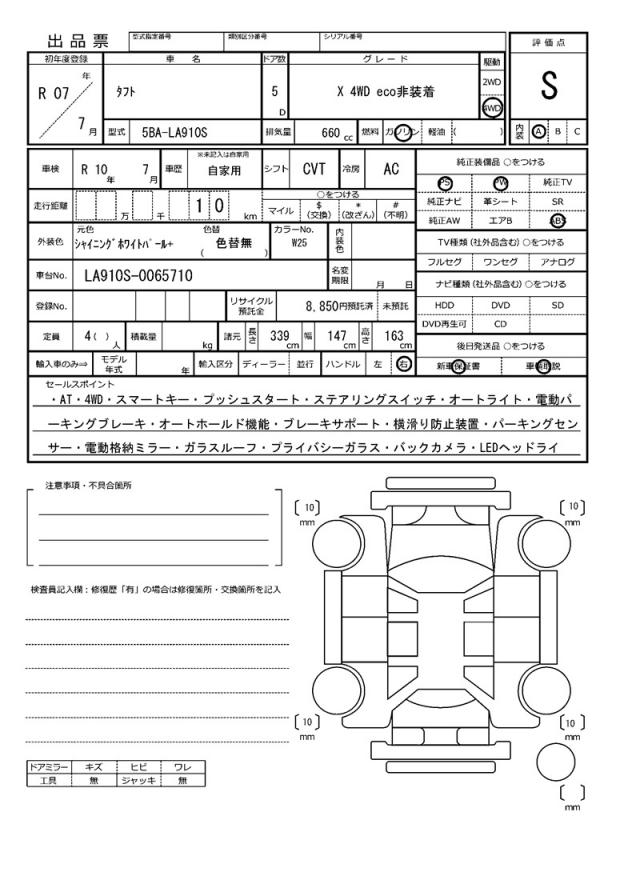 出品票
型式指定番号 類別区分番号 シリアル番号
評価点
S
内装 A B C
初年度登録 車名 ドア数 グレード 駆動
R 07 年 7 月
タフト 5 D X 4WD eco非装着 2WD 4WD
型式 5BA-LA910S 排気量 660 cc 燃料 ガソリン 軽油 ( )
車検 R 10 年 7 月 車歴 ※未記入は自家用 自家用 シフト CVT 冷房 AC
走行距離 万 千 1 0 km
○をつける
マイル $ (交換) * (改ざん) # (不明)
外装色 元色 シャイニングホワイトパール+ 色替 ( 色替無 ) カラーNo. W25 内装色
車台No. LA910S-0065710 名変期限 月 日
登録No. リサイクル預託金 8,850円預託済 未預託
定員 4( ) 人 積載量 kg 諸元 長さ 339 cm 幅 147 cm 高さ 163 cm
輸入車のみ⇒ モデル年式 年 輸入区分 ディーラー・並行 ハンドル 左 右
純正装備品 ○をつける
PS PW 純正TV
純正ナビ 革シート SR
純正AW エアB ABS
TV種類 (社外品含む) ○をつける
フルセグ ワンセグ アナログ
ナビ種類 (社外品含む) ○をつける
HDD DVD SD
DVD再生可 CD
後日発送品 ○をつける
新車保証書 車輌取説
セールスポイント
・AT・4WD・スマートキー・プッシュスタート・ステアリングスイッチ・オートライト・電動パ
ーキングブレーキ・オートホールド機能・ブレーキサポート・横滑り防止装置・パーキングセン
サー・電動格納ミラー・ガラスルーフ・プライバシーガラス・バックカメラ・LEDヘッドライ
注意事項・不具合箇所
検査員記入欄：修復歴「有」の場合は修復箇所・交換箇所を記入
ドアミラー キズ ヒビ ワレ
工具 無 ジャッキ 無
[ 10 ] mm
[ 10 ] mm
[ 10 ] mm
[ 10 ] mm
[ ] mm